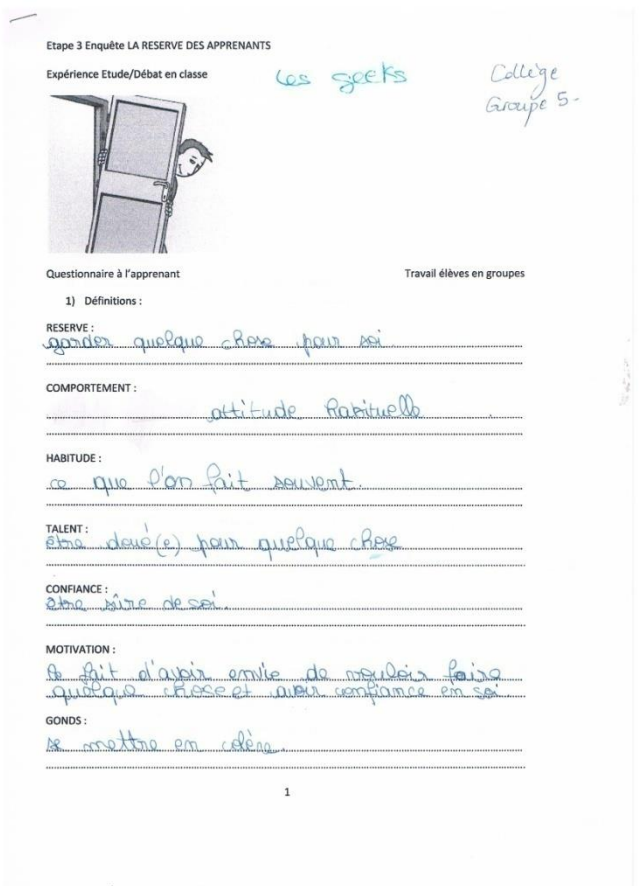 Etape 3 Enquête LA RESERVE DES APPRENANTS
Expérience Etude/Débat en classe
Les geeks
Collège
Groupe 5-
Questionnaire à l'apprenant
Travail élèves en groupes
1) Définitions :
RESERVE :
garder quelque chose pour soi
COMPORTEMENT :
attitude habituelle
HABITUDE :
ce que l'on fait souvent.
TALENT :
être doué(e) pour quelque chose
CONFIANCE :
être sûre de soi.
MOTIVATION :
le fait d'avoir envie de vouloir faire
quelque chose et avoir confiance en soi
GONDS :
se mettre en colère.
1